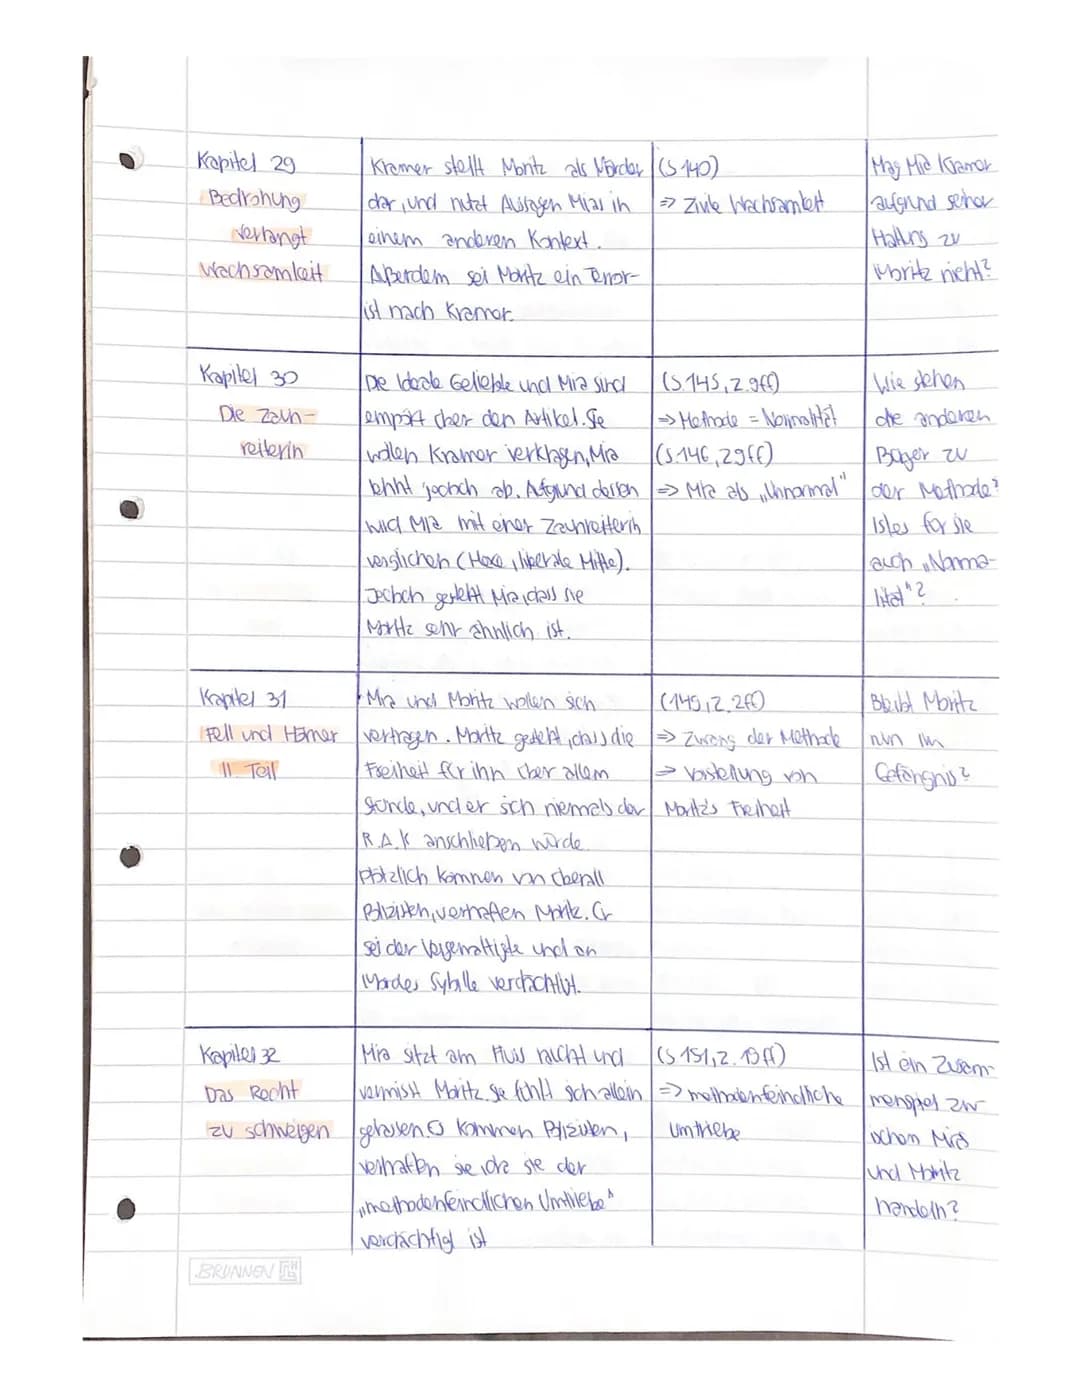 Kapitel 29
Bedrohung
verlangt
Wachsamkeit
Kramer stellt Moritz als Mörder
dar, und nutzt Aussagen Mias in
einem anderen Kontext.
Außerdem sei Moritz ein Terror-
ist nach Kramer.
(S 140)
=> Zivile Wachsamkeit
Mag Mia Kramer
aufgrund seiner
Haltung zu
Moritz nicht?
Kapitel 30
Die Zaun-
reiterin
Die Ideale Geliebte und Mia sind
empört über den Artikel. Sie
wollen Kramer verklagen, Mia
lehnt jedoch ab. Aufgrund dessen
wird Mia mit einer Zaunreiterin
verglichen (Hexe, liberale Mitte).
Jedoch gesteht Mia, dass sie
Moritz sehr ähnlich ist.
(S.145, Z.9ff)
=> Methode = Normalität
(S.146, 29ff)
=> Mia als „Unnormal"
Wie stehen
die anderen
Bürger zu
der Methode?
Ist es für sie
auch „Norma-
lität"?
Kapitel 31
Fell und Hörner
II Teil
Mia und Moritz wollen sich
vertragen. Moritz gesteht, dass die
Freiheit für ihn über allem
stünde, und er sich niemals der
R.A.K anschließen würde.
Plötzlich kommen von überall
Polizisten, verhaften Moritz. Er
sei der Vergewaltigte und an
Mordes Sybille verdächtigt.
(149, Z.2ff)
=> Zwang der Methode
=> Vorstellung von
Moritz's Freiheit
Bleibt Moritz
nun im
Gefängnis?
Kapitel 32
Das Recht
zu schweigen
Mia sitzt am Fluss raucht und
vermisst Moritz. Sie fühlt sich allein
gelassen. Kommen Polizisten,
verhaften sie, da sie der
„methodenfeindlichen Umtriebe"
verdächtigt ist
(S 151, Z. 19ff)
=> methodenfeindliche
Umtriebe
Ist ein Zusam-
menspiel zwi-
schen Mias
und Moritz
handeln?
BRUNNEN